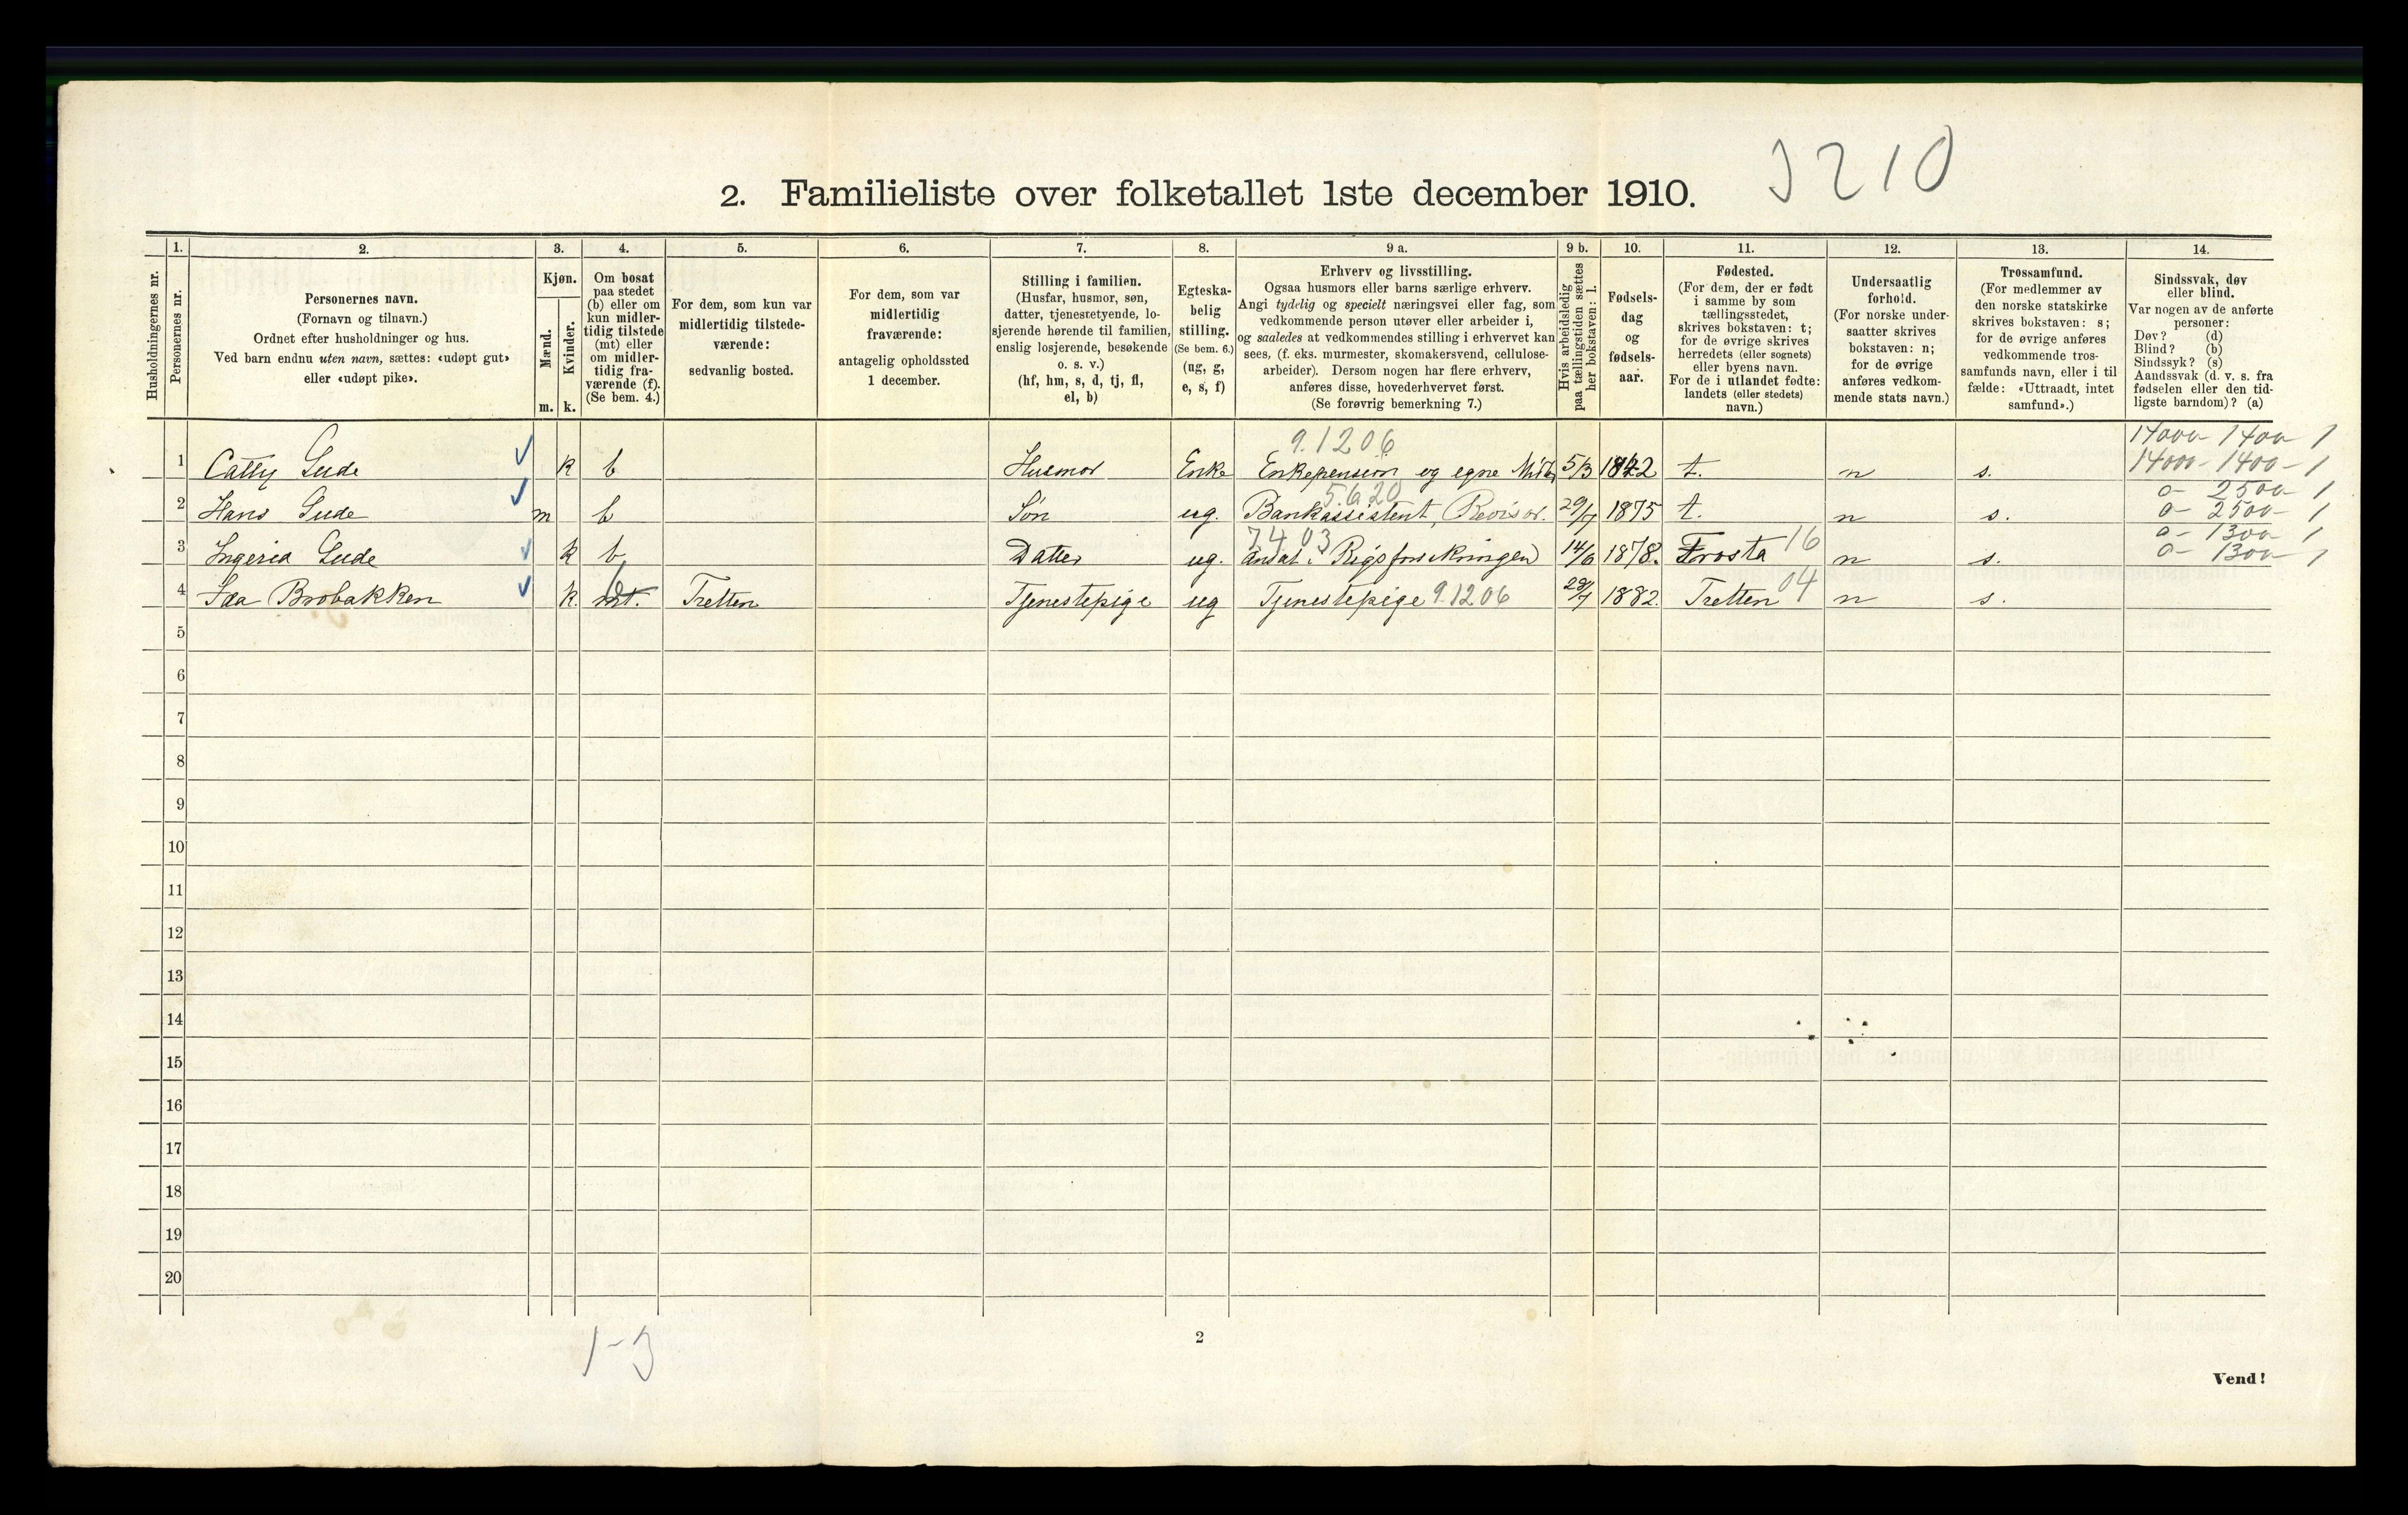 3210
2. Familieliste over folketallet 1ste december 1910.
Husholdningernes nr.
1.
Personernes nr.
2.
Personernes navn.
(Fornavn og tilnavn.)
Ordnet efter husholdninger og hus.
Ved barn endnu uten navn, sættes: «udøpt gut»
eller «udøpt pike».
3.
Kjøn.
Mænd.
Kvinder.
m. k.
4.
Om bosat
paa stedet
(b) eller om
kun midler-
tidig tilstede
(mt) eller
om midler-
tidig fra-
værende (f).
(Se bem. 4.)
5.
For dem, som kun var
midlertidig tilstede-
værende:
sedvanlig bosted.
6.
For dem, som var
midlertidig
fraværende:
antagelig opholdssted
1 december.
7.
Stilling i familien.
(Husfar, husmor, søn,
datter, tjenestetyende, lo-
sjerende hørende til familien,
enslig losjerende, besøkende
o. s. v.)
(hf, hm, s, d, tj, fl,
el, b)
8.
Egteska-
belig
stilling.
(Se bem. 6.)
(ug, g,
e, s, f)
9 a.
Erhverv og livsstilling.
Ogsaa husmors eller barns særlige erhverv.
Angi tydelig og specielt næringsvei eller fag, som
vedkommende person utøver eller arbeider i,
og saaledes at vedkommendes stilling i erhvervet kan
sees, (f. eks. murmester, skomakersvend, cellulose-
arbeider). Dersom nogen har flere erhverv,
anføres disse, hovederhvervet først.
(Se forøvrig bemerkning 7.)
9 b.
Hvis arbeidsledig
paa tællingstiden sættes
her bokstaven: l.
10.
Fødsels-
dag
og
fødsels-
aar.
11.
Fødested.
(For dem, der er født
i samme by som
tællingsstedet,
skrives bokstaven: t;
for de øvrige skrives
herredets (eller sognets)
eller byens navn.
For de i utlandet fødte:
landets (eller stedets)
navn.)
12.
Undersaatlig
forhold.
(For norske under-
saatter skrives
bokstaven: n;
for de øvrige
anføres vedkom-
mende stats navn.)
13.
Trossamfund.
(For medlemmer av
den norske statskirke
skrives bokstaven: s;
for de øvrige anføres
vedkommende tros-
samfunds navn, eller i til
fælde: «Uttraadt, intet
samfund».)
14.
Sindssvak, døv
eller blind.
Var nogen av de anførte
personer:
Døv? (d)
Blind? (b)
Sindssyk? (s)
Aandssvak (d. v. s. fra
fødselen eller den tid-
ligste barndom)? (a)
9.1206 14000 - 1400 - 1
1 Catty Gude k b Husmor Enke Enkepension og egne Midler 5/3 1842 t. n s. 14000 - 1400 - 1
5.620 0 - 2500 - 1
2 Hans Gude m b Søn ug. Bankassistent, Revisor. 29/7 1875 t. n s. 0 - 2500 - 1
7403 0 - 1300 - 1
3 Ingerid Gude k b Datter ug. Ansat i Rigsforsikringen 14/6 1878. Frosta 16 n s. 0 - 1300 - 1
4 Ida Brobakken k. mt. b Tretten Tjenestepige ug Tjenestepige 9.1206 28/7 1882. Tretten 04 n s.
5
6
7
8
9
10
11
12
13
14
15
16
17
18
19
20
1-3
2
Vend!